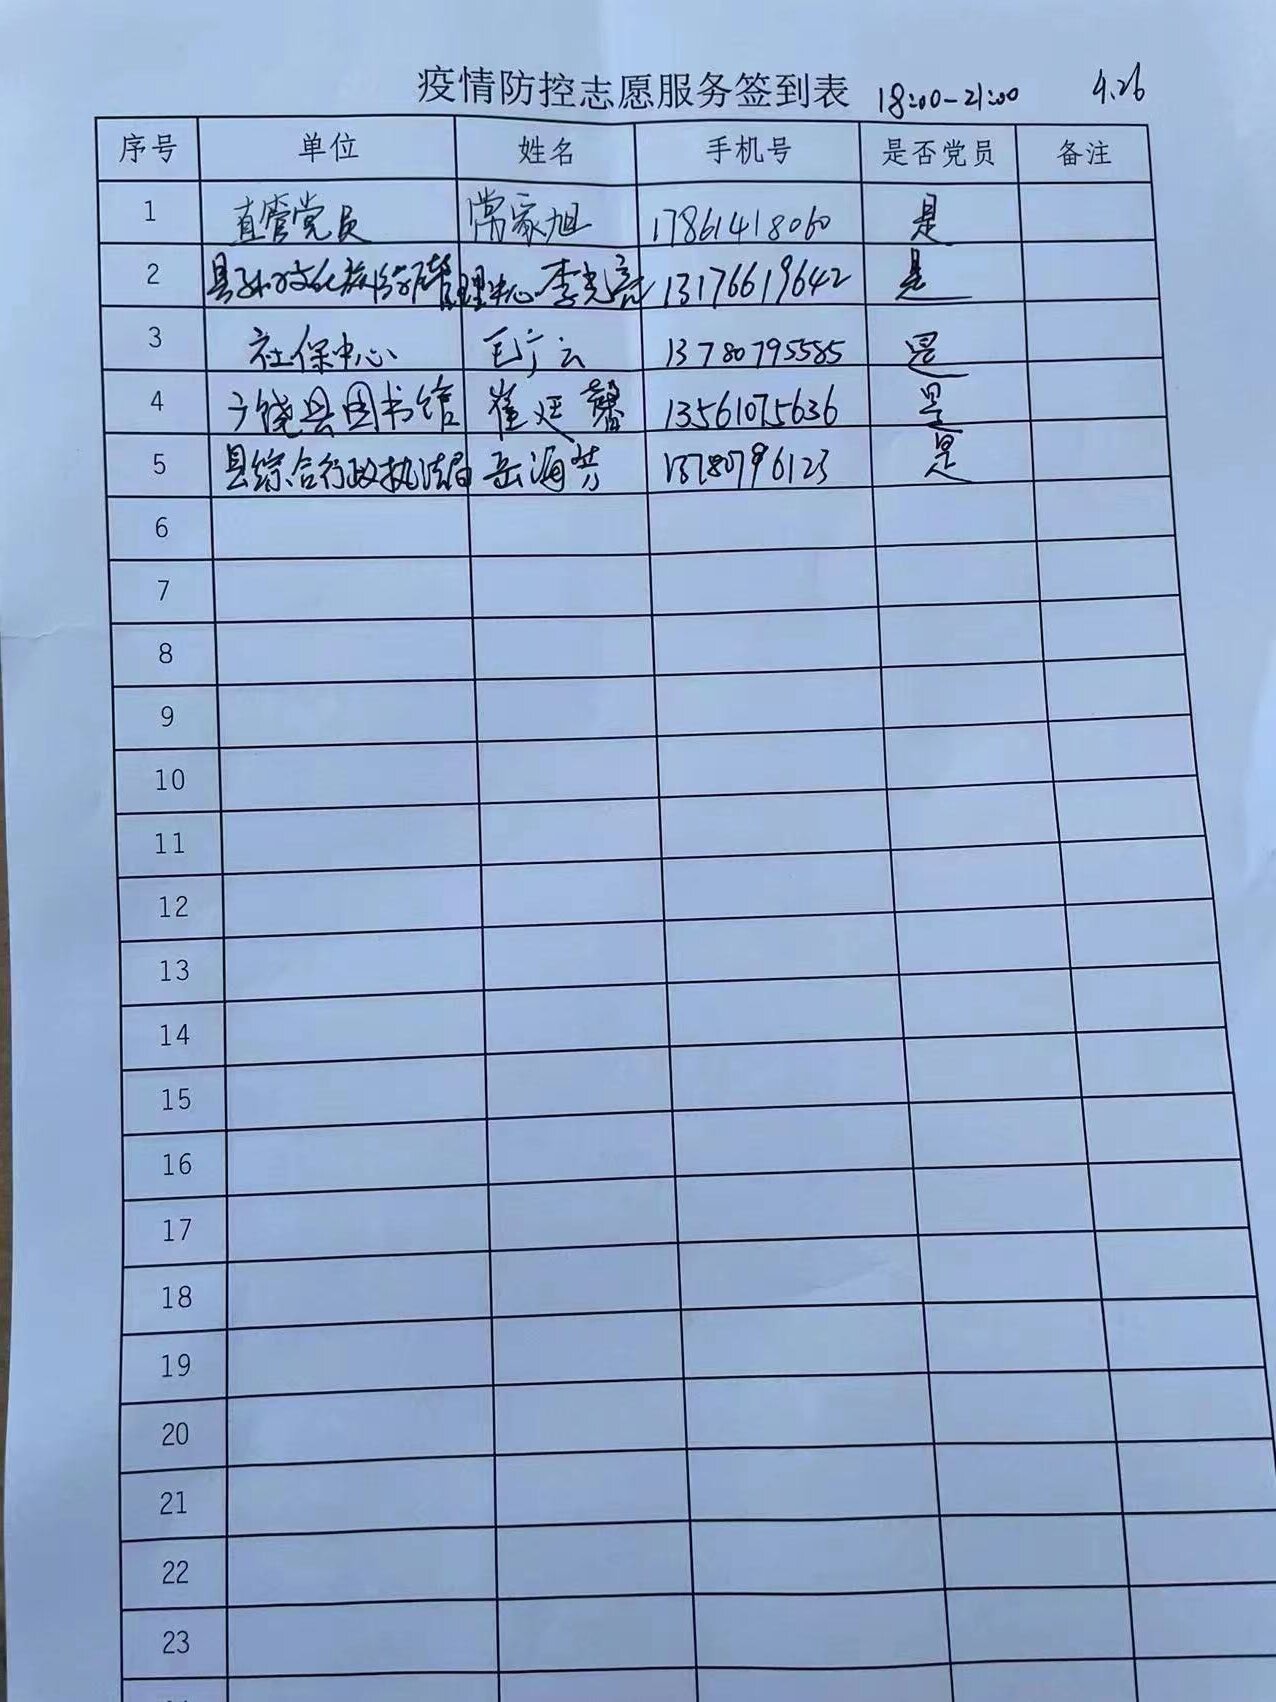 疫情防控志愿服务签到表 18:00-21:00 4.26
序号 单位 姓名 手机号 是否党员 备注
1 直管党员 常家旭 17861418060 是
2 县孙子文化旅游区管理中心 李光 13176619642 是
3 社保中心 毛广云 13780795585 是
4 广饶县图书馆 崔廷馨 13561075636 是
5 县综合行政执法局 岳海芳 13780796123 是
6
7
8
9
10
11
12
13
14
15
16
17
18
19
20
21
22
23